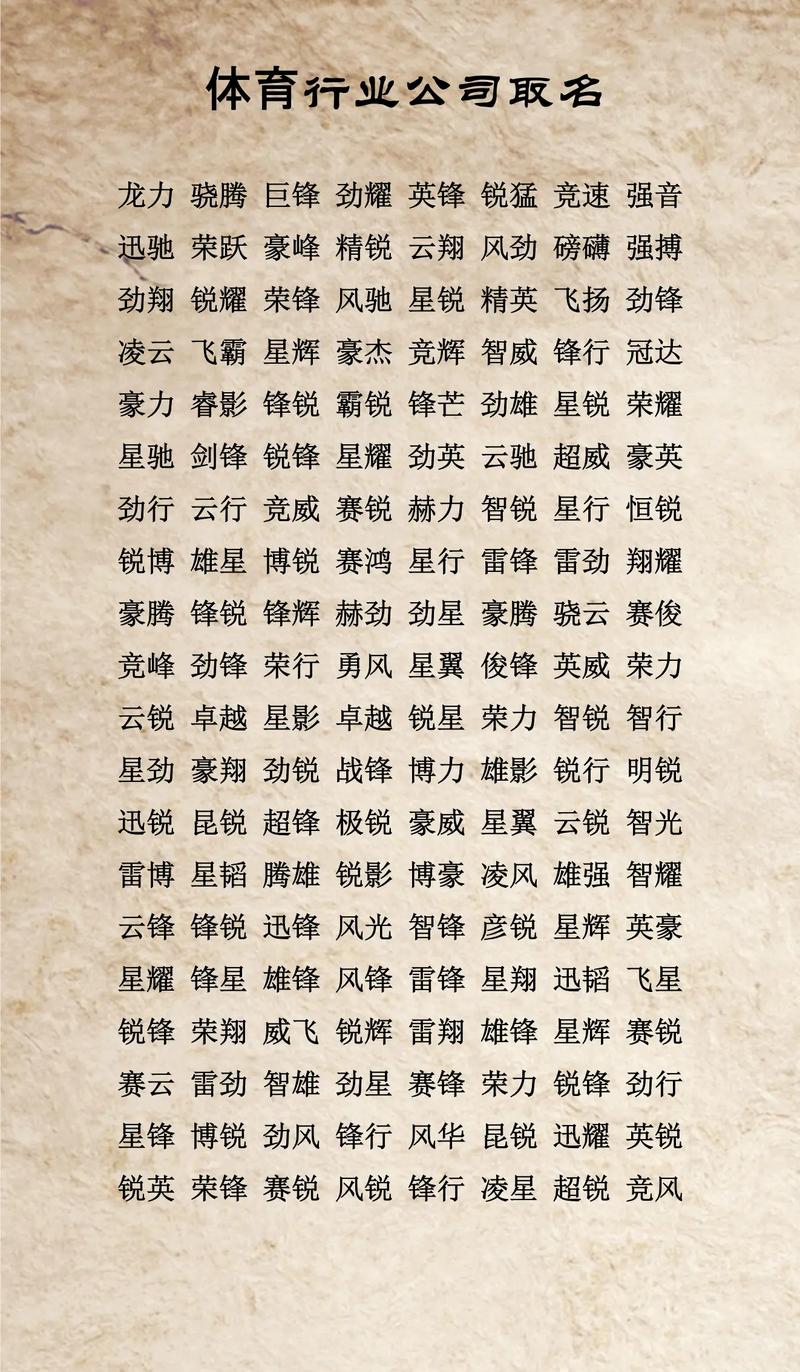 体育行业公司取名
龙力 骁腾 巨锋 劲耀 英锋 锐猛 竞速 强音
迅驰 荣跃 豪峰 精锐 云翔 风劲 磅礴 强搏
劲翔 锐耀 荣锋 风驰 星锐 精英 飞扬 劲锋
凌云 飞霸 星辉 豪杰 竞辉 智威 锋行 冠达
豪力 睿影 锋锐 霸锐 锋芒 劲雄 星锐 荣耀
星驰 剑锋 锐锋 星耀 劲英 云驰 超威 豪英
劲行 云行 竞威 赛锐 赫力 智锐 星行 恒锐
锐博 雄星 博锐 赛鸿 星行 雷锋 雷劲 翔耀
豪腾 锋锐 锋辉 赫劲 劲星 豪腾 骁云 赛俊
竞峰 劲锋 荣行 勇风 星翼 俊锋 英威 荣力
云锐 卓越 星影 卓越 锐星 荣力 智锐 智行
星劲 豪翔 劲锐 战锋 博力 雄影 锐行 明锐
迅锐 昆锐 超锋 极锐 豪威 星翼 云锐 智光
雷博 星韬 腾雄 锐影 博豪 凌风 雄强 智耀
云锋 锋锐 迅锋 风光 智锋 彦锐 星辉 英豪
星耀 锋星 雄锋 风锋 雷锋 星翔 迅韬 飞星
锐锋 荣翔 威飞 锐辉 雷翔 雄锋 星辉 赛锐
赛云 雷劲 智雄 劲星 赛锋 荣力 锐锋 劲行
星锋 博锐 劲风 锋行 风华 昆锐 迅耀 英锐
锐英 荣锋 赛锐 风锐 锋行 凌星 超锐 竞风